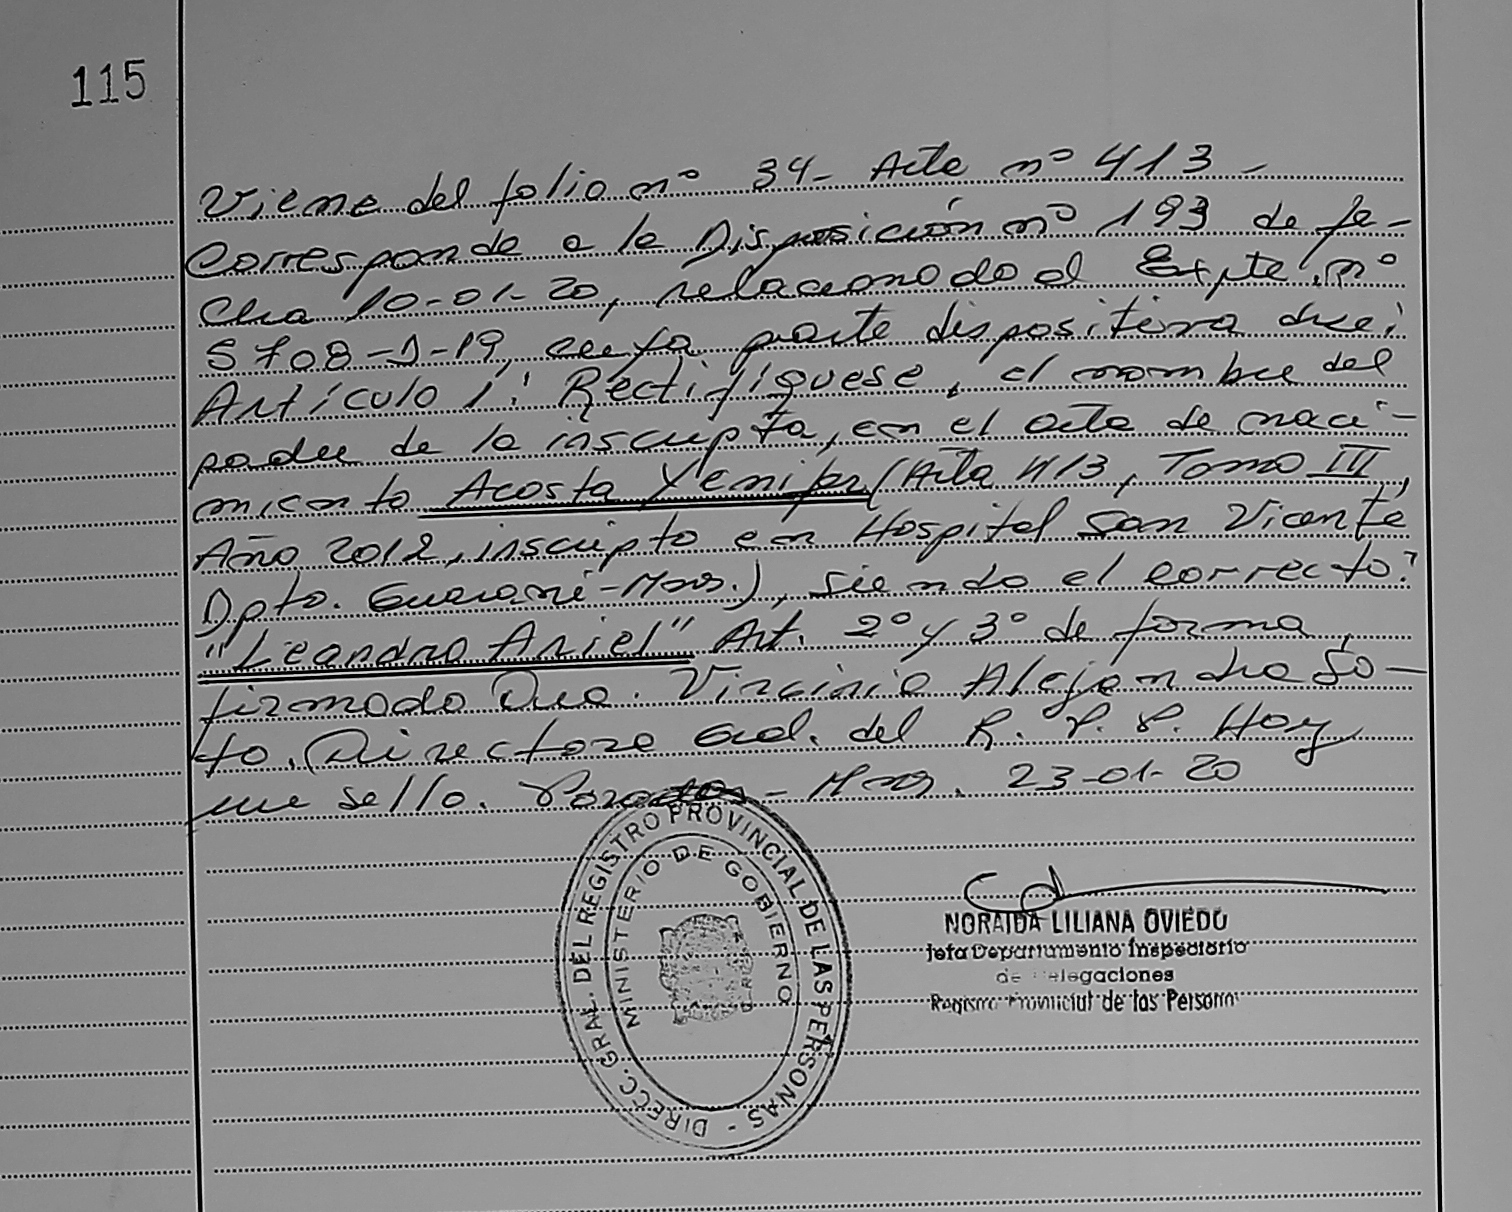 115
Viene del folio nº 34- Acta nº 413-
Corresponde a la Disposición nº 193 de fe-
cha 10-01-20, relacionado al Expte. nº
5708-J-19, cuya parte dispositiva dice:
Artículo 1: Rectifíquese, el nombre del
padre de la inscripta, en el acta de naci-
miento Acosta Yenifer (Acta 413, Tomo III,
Año 2012, inscripto en Hospital San Vicente
Dpto. Guaraní-Mnes.), siendo el correcto:
"Leandro Ariel" Art. 2º y 3º de forma,
firmado Dra. Virginia Alejandra So-
to. Directora Gral. del R. P. P. Hay
un sello. Posadas - Mnes. 23-01-20
DIRECC. GRAL. DEL REGISTRO PROVINCIAL DE LAS PERSONAS -
MINISTERIO DE GOBIERNO
NORAIDA LILIANA OVIEDO
Jefa Departamento Inspectorio
de Delegaciones
Registro Provincial de las Personas